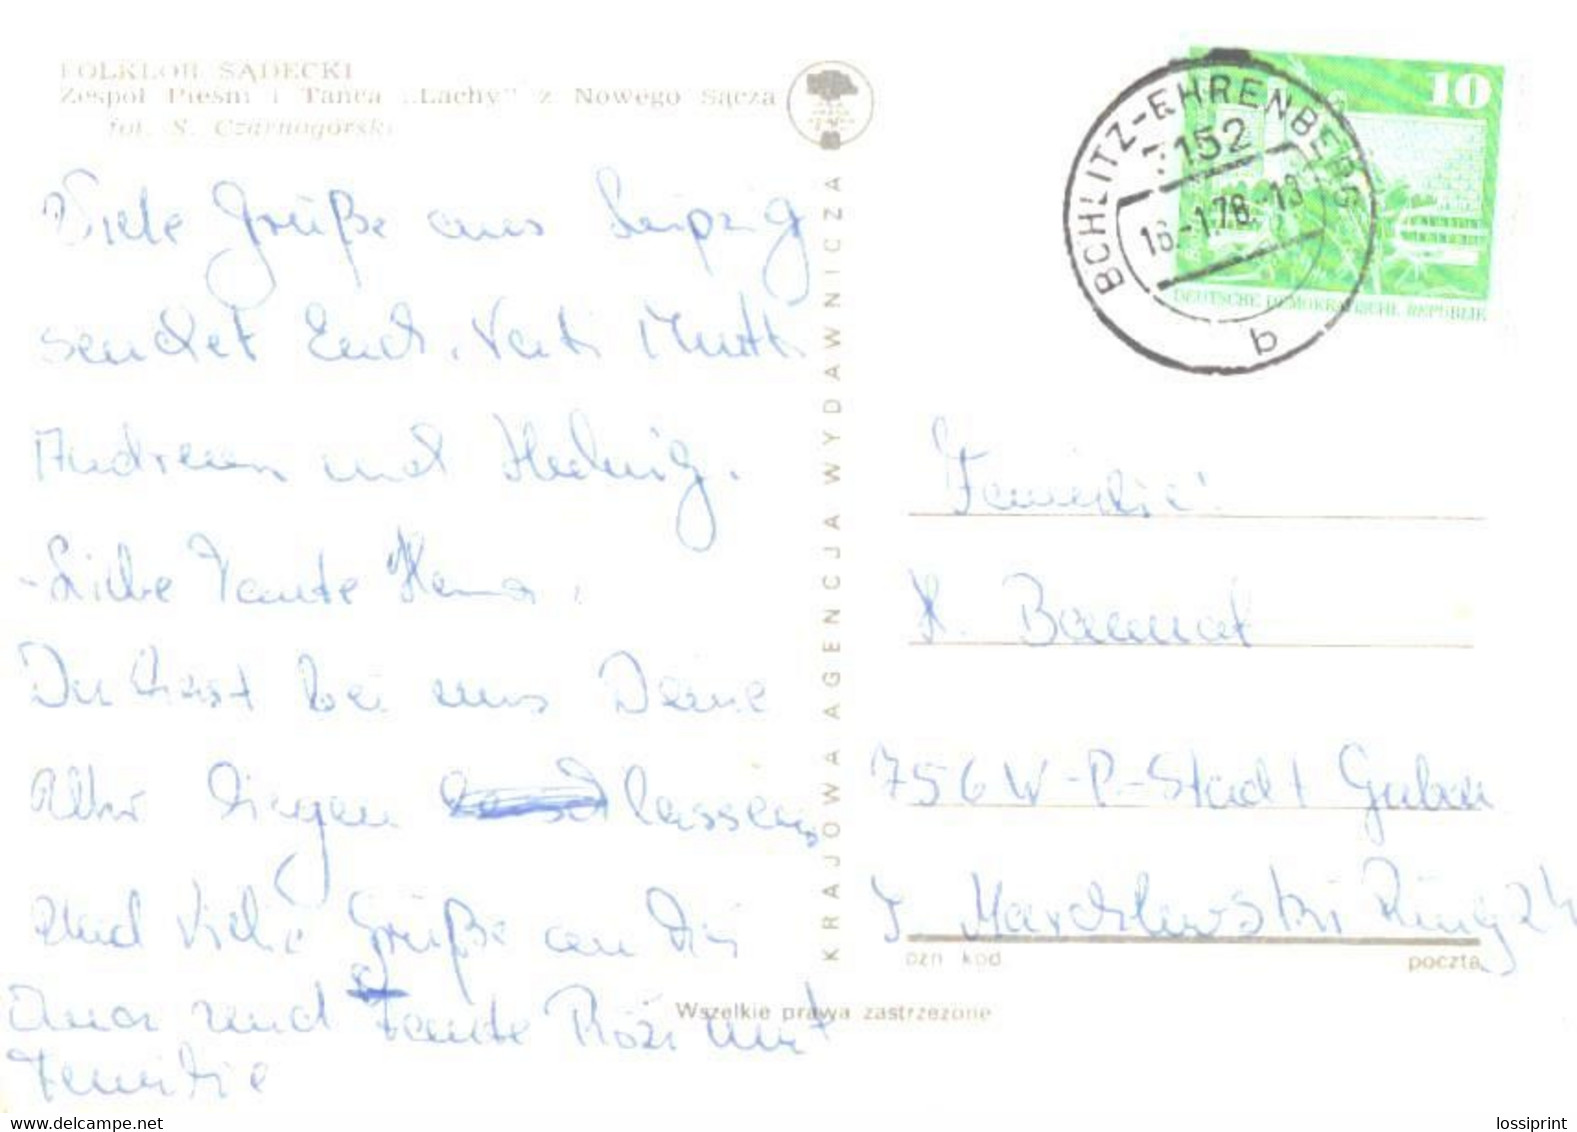 FOLKLOR SĄDECKI
Zespół Pieśni i Tańca „Lachy” z Nowego Sącza
fot. S. Czarnogórski
Viele Grüße aus Leipzig
sendet Euch, Vati Mutti
Andreas und Hedwig.
-Liebe Tante Hana,
Du hast bei uns Deine
Uhr liegen lassen
und viele Grüße an
und Tante Rosi mit
Familie
KRAJOWA AGENCJA WYDAWNICZA
Wszelkie prawa zastrzeżone
BÖHLITZ-EHRENBERG
7152
16.-1.78.-13
b
10
DEUTSCHE DEMOKRATISCHE REPUBLIK
Familie
H.
756 W-P-Stadt Guben
J. Marchlewski Ring 24
ozn kod
poczta
lossiprint